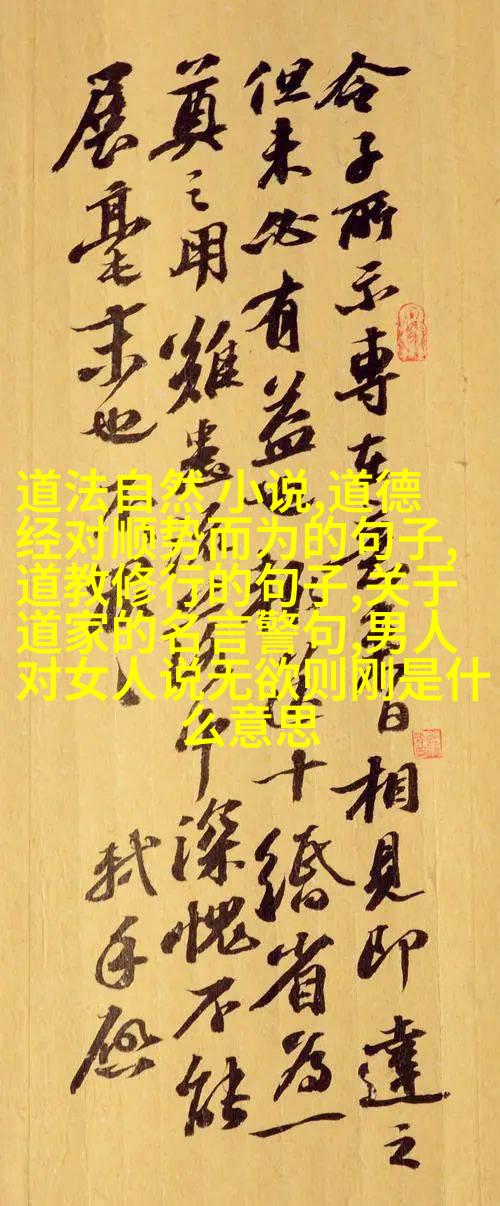 道法自然 小说,道德
经对顺势而为的句子,
道教修行的句子,关于
道家的名言警句,男人
对女人说无欲则刚是什
么意思
子所示專在日相見即達之
但未必有益十省為一
奠之用深愧不能
展毫末也
軾手啟